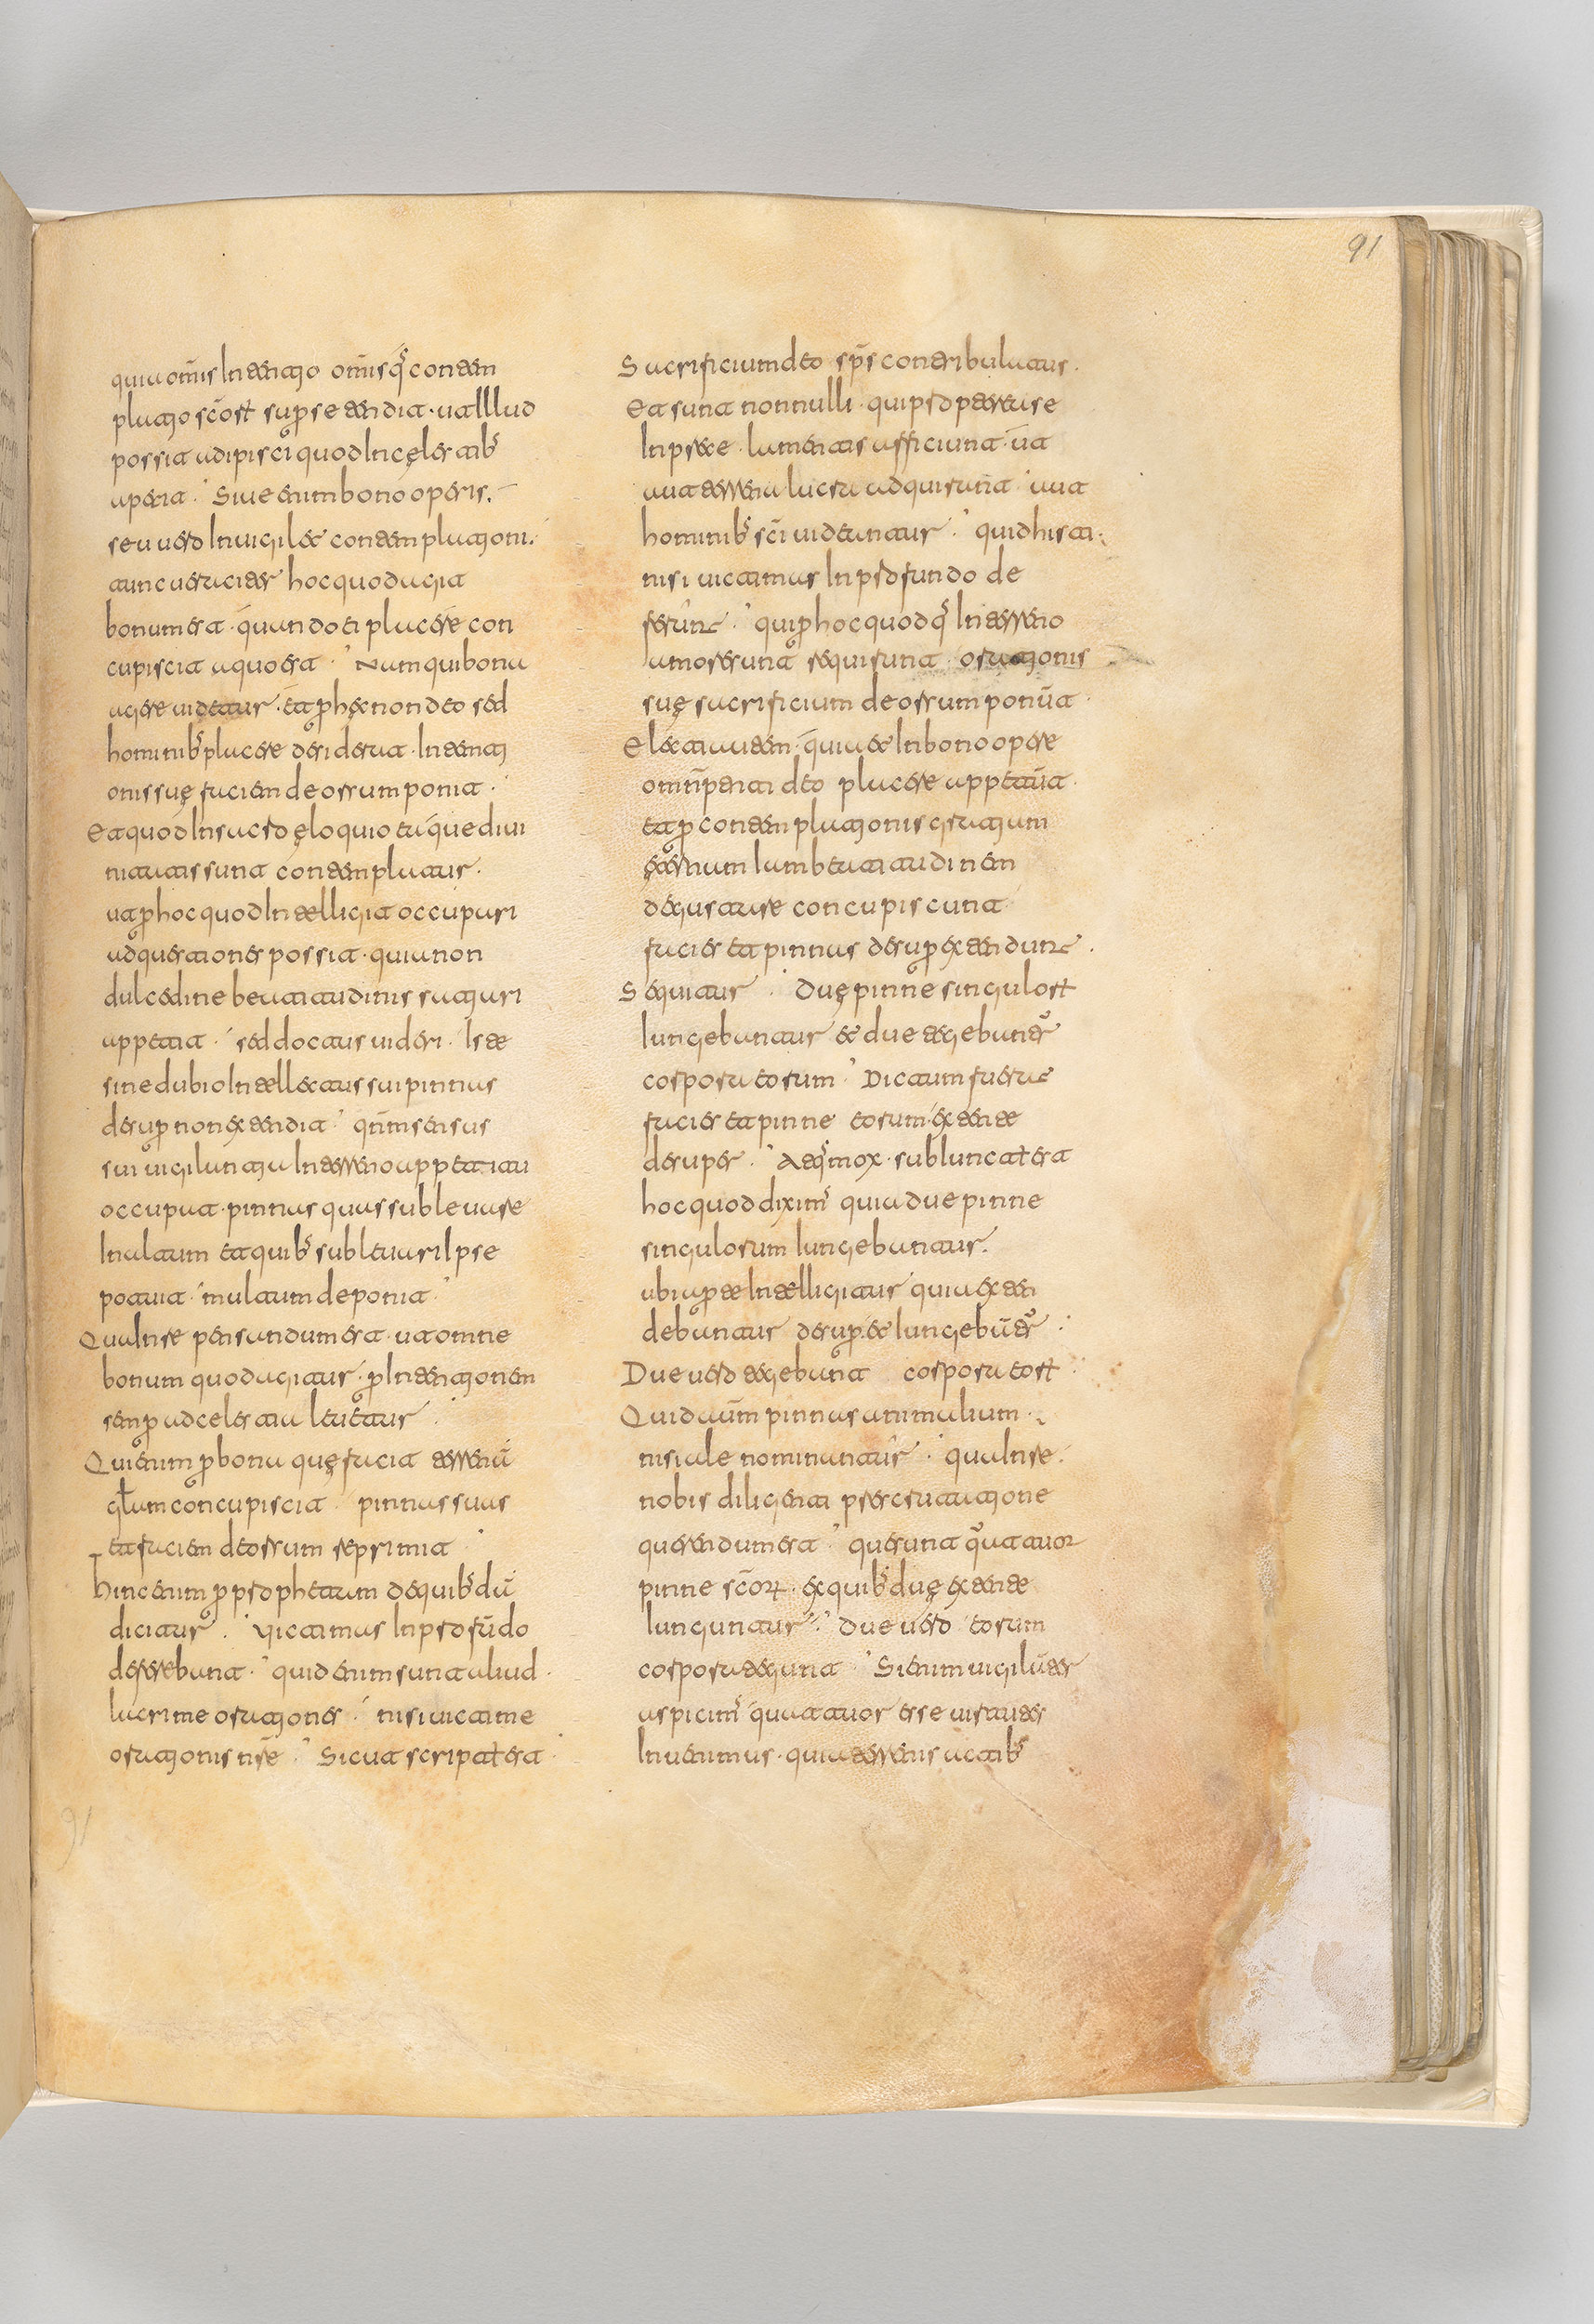 91
quia om̄is Intentio om̄isq: contem
platio scōrum super se tendit · ut Illud
possit adipisci quod In cęlestibs
apetit · Siue enim bono operi ·
seu uero Inuigilet contemplationi ·
tunc ueraciter hoc quod agit
bonum est · quando ei placere con
cupiscit a quo est · Nam qui bona
agere uidetur · et ꝑ hęc non deo sed
hominibs placere desiderat · Intenti
onis suę faciem deorsum ponit ·
Et quod In sacro ęloquio ea que diui
nitatis sunt contemplatur ·
ut ꝑ hoc quod Intelligit occupari
ad questiones possit · quia non
dulcedine beatitudinis satiari
appetit · sed doctus uideri · Iste
sine dubio Intellectus sui pinnas
desuꝑ non extendit qm̄ sensus
sui uigilantia In terreno appetitu
occupat · pinnas quas subleuare
In altum et quibs subleuari Ipse
potuit · In altum deponit
Qua In re pensandum est · ut omne
bonum quod agitur · ꝑ Intentionem
semꝑ ad celestia leuetur
Qui enim ꝑ bona quę facit terrenā
glam concupiscit pinnas suas
et faciem deorsum reprimit
hinc enim ꝑ prophetam de quibsdā
dicitur · Victimas In profūdo
deierebant · quid enim sunt aliud ·
lacrime orationes · nisi uictime
orationis nr̄e · Sicut scriptū est ·
Sacrificium deo sp̄s contribulatus ·
Et sunt nonnulli · qui pro parte se
In prece · lamentis afficiunt · ut
aut terrena lucra adquirant aut
hominibs sc̄i uideantur · quid hi sti ·
nisi uictimas In profundo de
ferunt · qui ꝑ hoc quodq: In terreno
amoserunt requirunt · orationis
suę sacrificium deorsum ponūt ·
Electi autem · quia et In bono opere
om̄ipotenti deo placere appetūt ·
et ꝑ contemplationis gratiam
ęternam Iam beatitudinem
degustare concupiscunt
facies et pinnas desuꝑ extendunt ·
Sequitur · Duę pinne singulorum
Iungebantur et due tegebant
corpora eorum · Dictum fuerat
facies et pinne eorum · extente
desuper · Atq: mox · subiunctū est
hoc quod diximus quia due pinne
singulorum Iungebantur ·
ubi apte Intelligitur quia exten
debantur desuꝑ et Iungebantur ·
Due uero tegebant corpora eorum ·
Quid autem pinnas animalium ·
nisi ale nominantur · qua In re ·
nobis diligenti perscrutatione
querendum est · que sunt quatuor
pinne sc̄orum · ex quibs duę extente
Iunguntur · Due uero eorum
corpora tegunt · Si enim uigilāter
aspicims quattuor esse uirtutes
Inuenimus · quia terrenis actibs
91